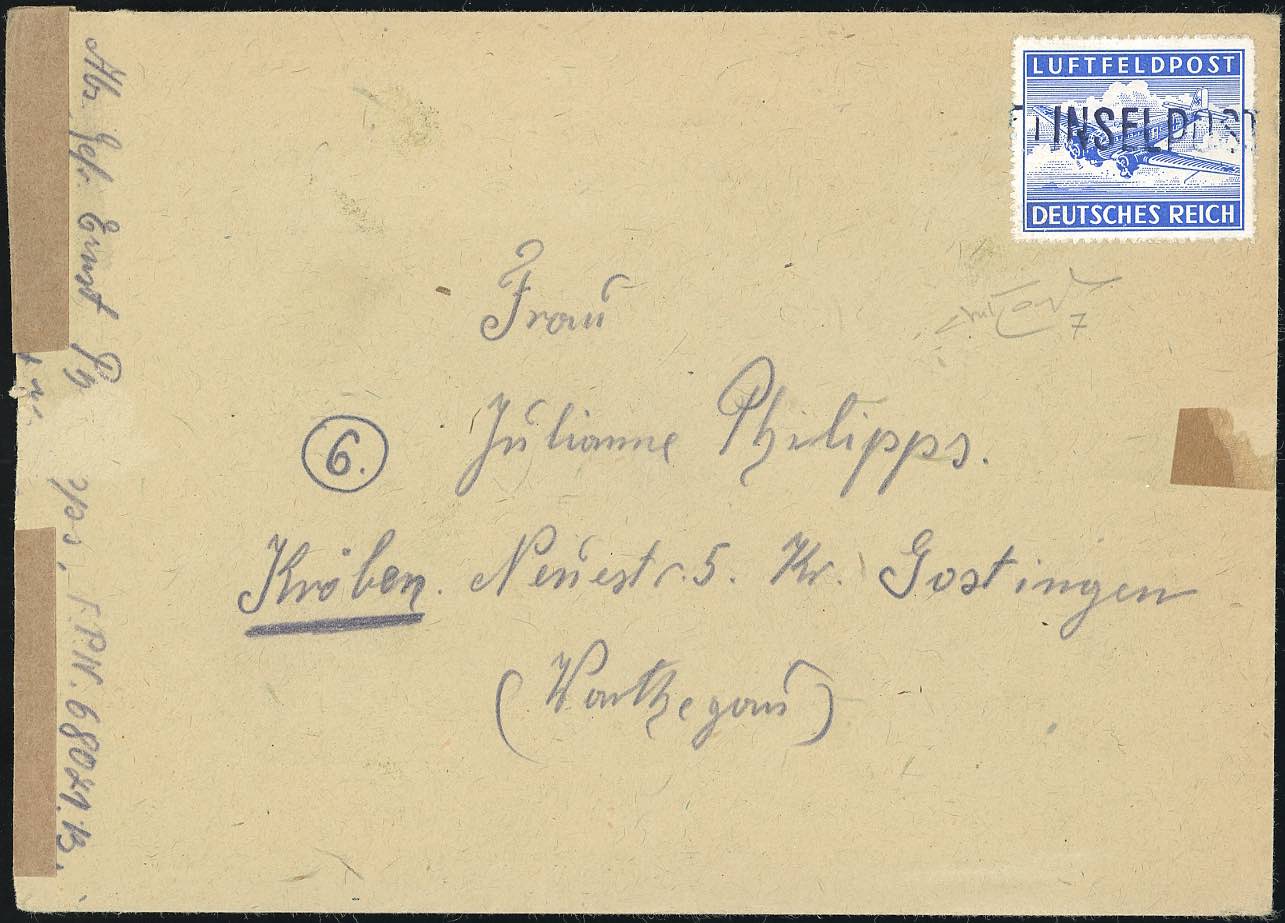 LUFTFELDPOST
INSELPOST
DEUTSCHES REICH
Frau
6.
Julianne Philipps.
Kröben. Neuestr. 5. Kr. Gostingen
(Warthegau)
7
Ernst
F.P.N. 68021.B.